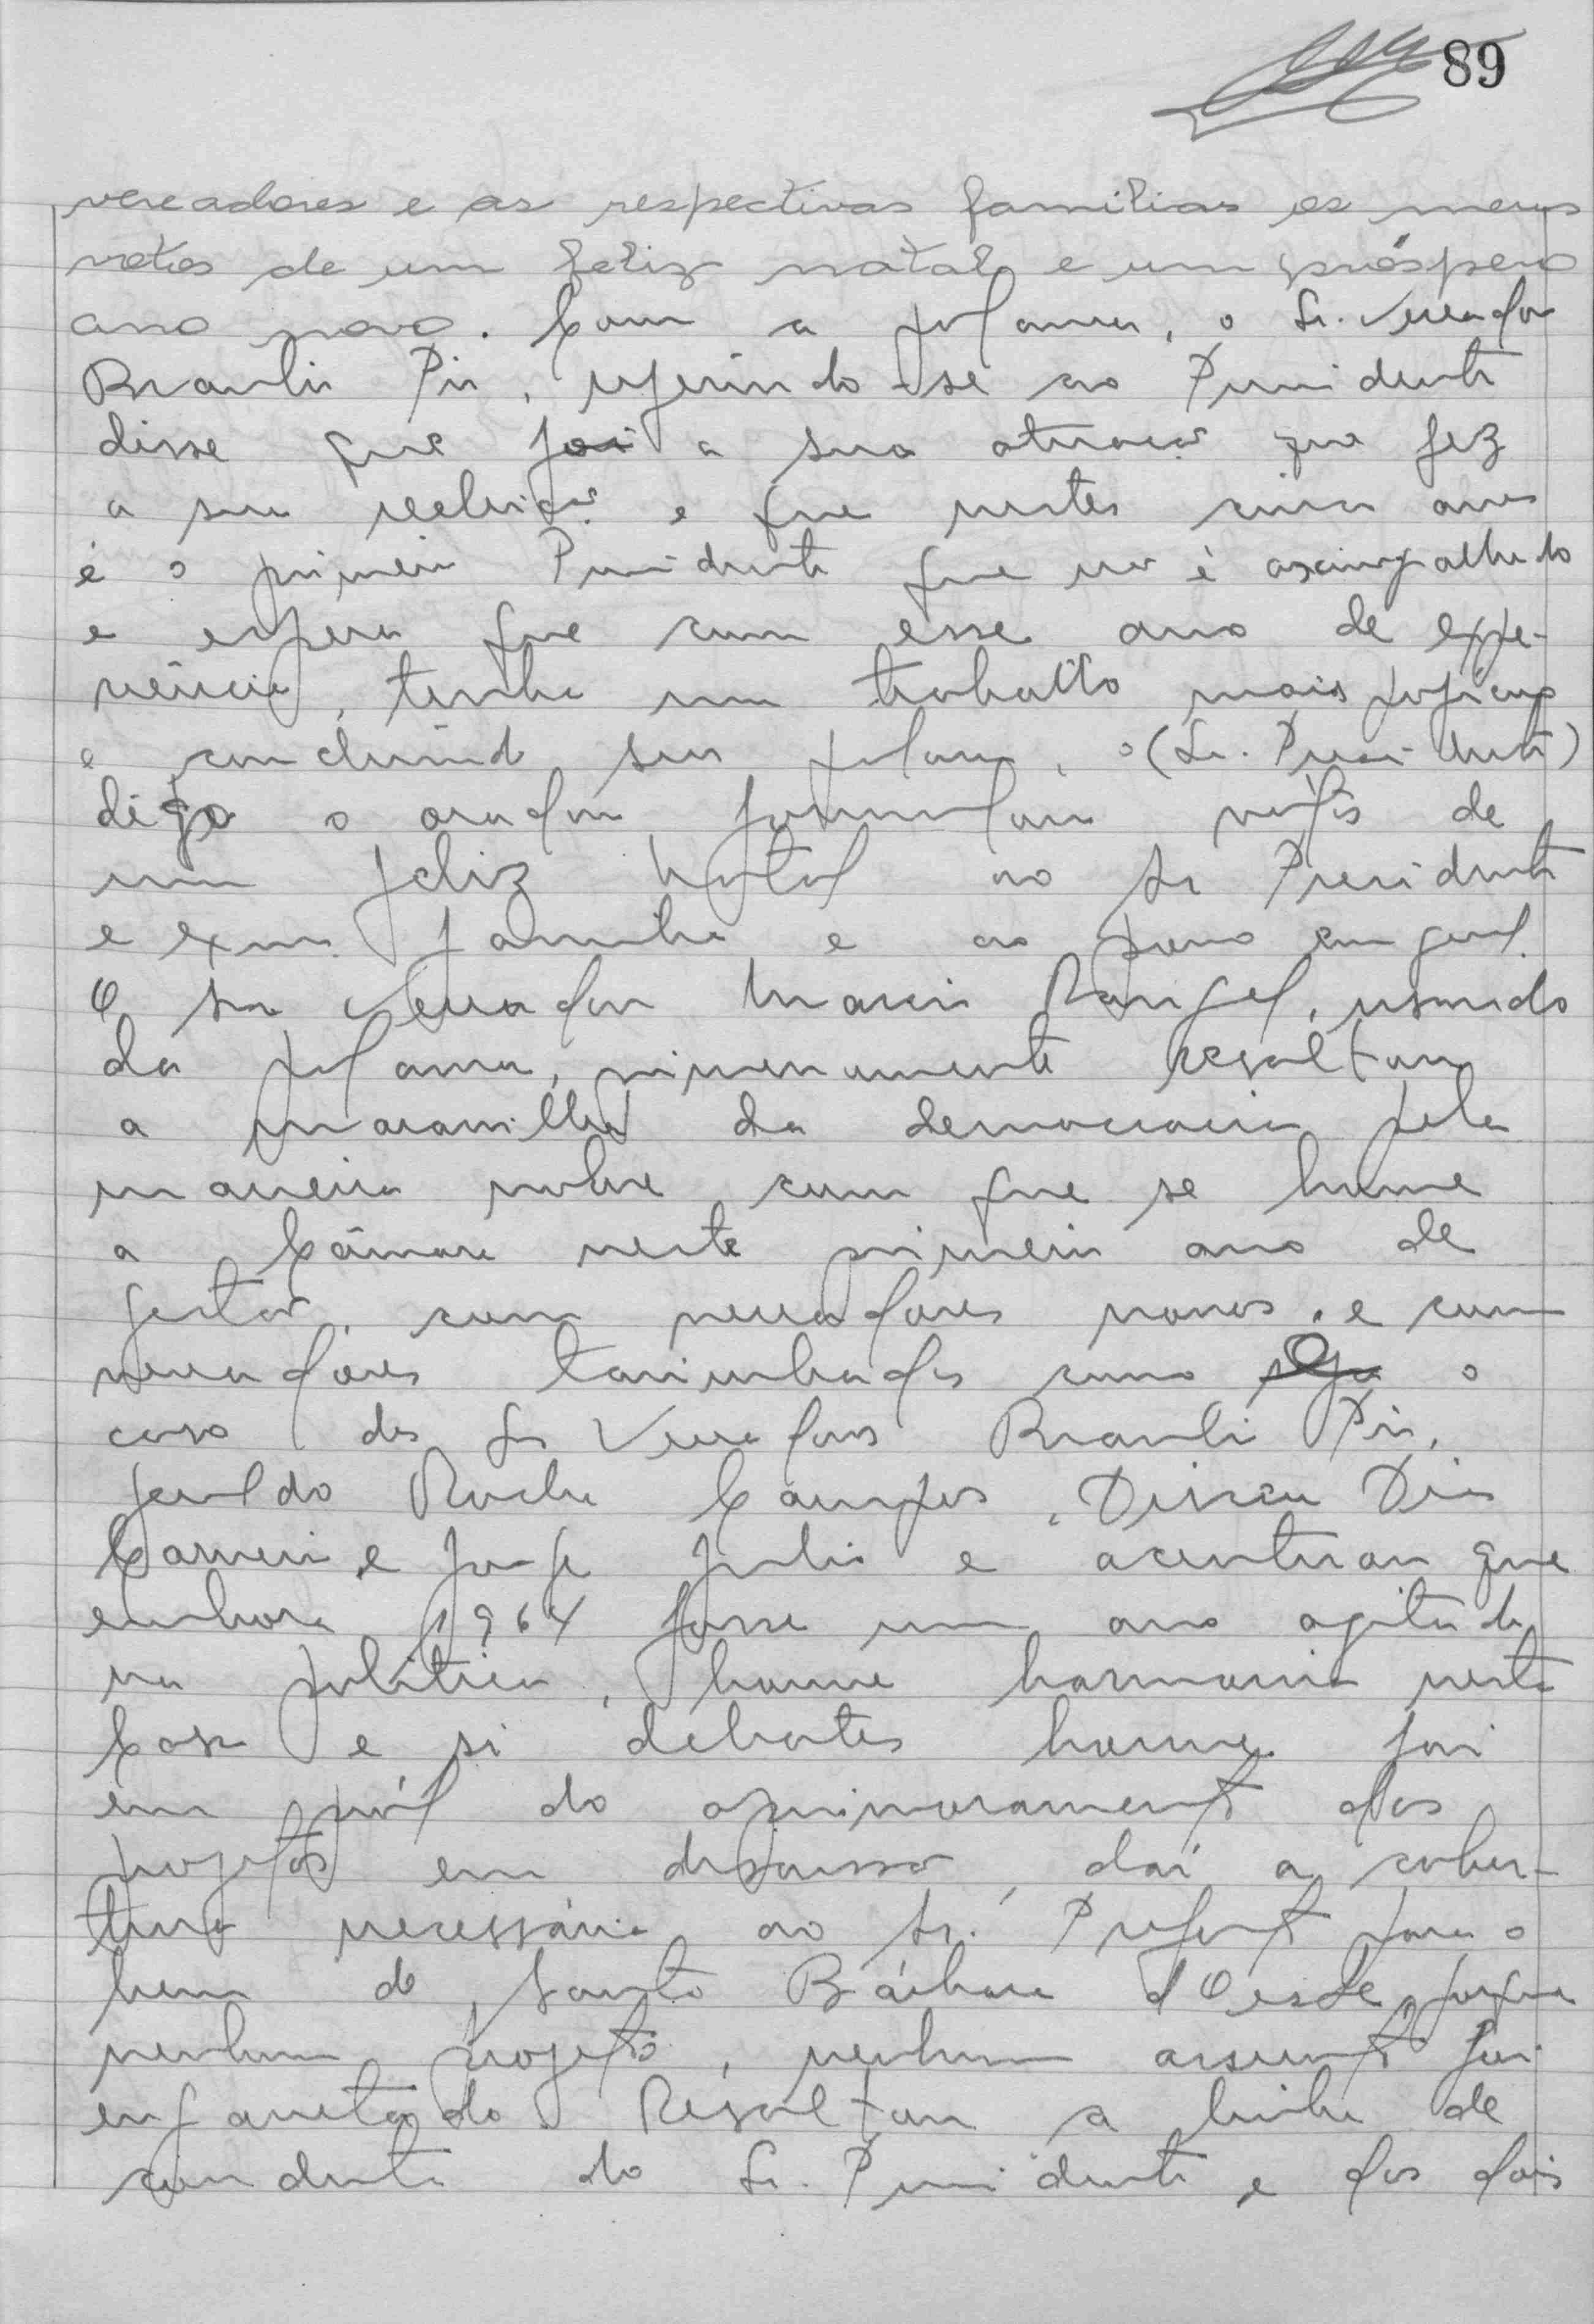 89
vereadores e as respectivas familias os meus
votos de um feliz natal e um próspero
ano novo. Com a palavra, o Sr. Vereador
Braulio Pio, referindo-se ao Presidente
disse que foi a sua atuação que fez
a sua reeleição e que nestes cinco anos
é o primeiro Presidente que não é axincalhado
e espera que com esse ano de expe-
riência, tenha um trabalho mais profícuo
e concluindo sua palavra, o (Sr. Presidente)
digo o orador formulou votos de
um feliz Natal ao Sr Presidente
e exma. familia e ao povo em geral.
O Sr Vereador Marcio Rangel, usando
da palavra, primeiramente resaltou
a maravilha da democracia pela
maneira nobre com que se houve
a Câmara neste primeiro ano de
gestão, com vereadores novos, e com
vereadores tarimbados como o
caso dos Srs Vereadores Braulio Pio,
Geraldo Rocha Campos, Dirceu Dias
Carneiro e Jorge Julio e acentuou que
embora 1964 fosse um ano agitado
na politica, houve harmonia nesta
Casa e si debates houve foi
em pról do aprimoramento dos
projetos em discussão, daí a cober-
tura necessária ao Sr. Prefeito para o
bem de Santa Bárbara d'Oeste, porque
nenhum projeto, nenhum assunto foi
engavetado. Resaltou a linha de
conduta do Sr. Presidente e dos dois